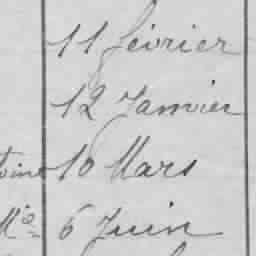 11 février
12 Janvier
toine 10 Mars
Mie 6 Juin